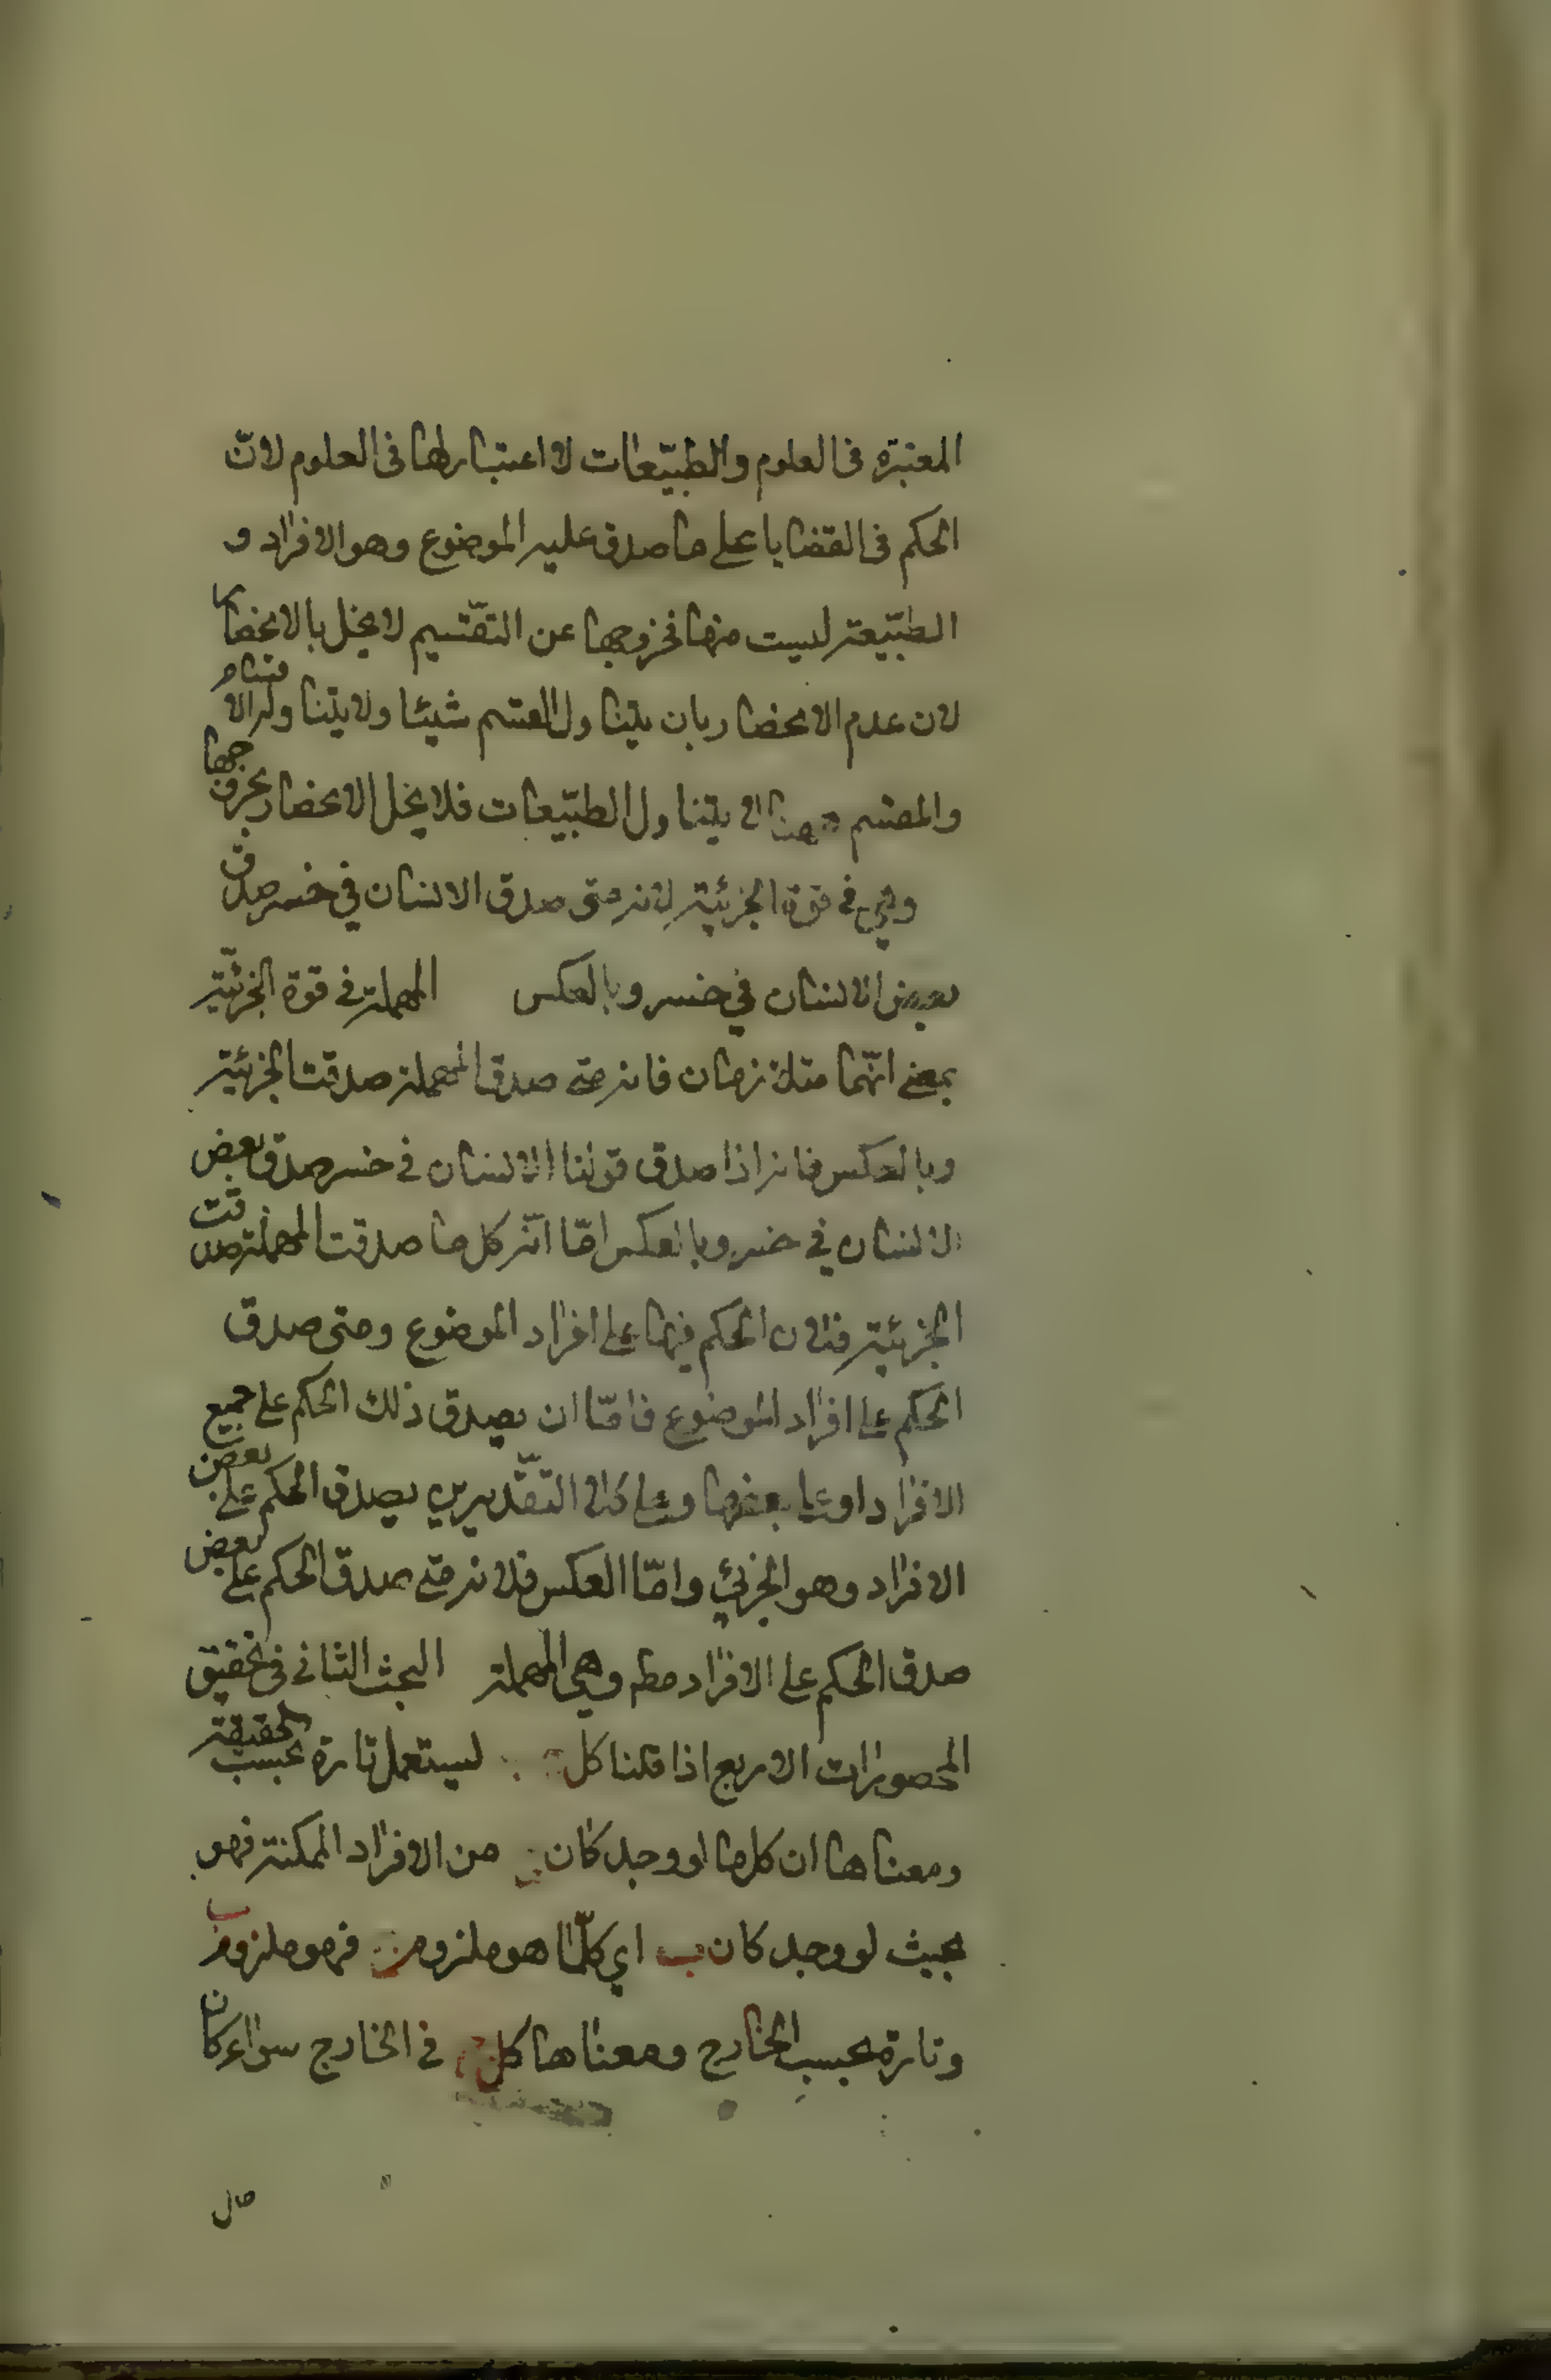 المعتبرة فى العلوم والطبيّعات لا اعتبار لها فى العلوم لانّ
الحكم فى القضايا على ما صدق عليه الموضوع وهو الافراد و
الطبيّعة ليست منها فخروجها عن التقسيم لا يخل بالانحصار
لان عدم الانحصار بان يتناول المقسم شيئا ولا يتناوله الاقسام
والمقسم ههنا لا يتناول الطبيّعات فلا يخل الانحصار بخروجها
وهي في قوة الجزئية لانه متى صدق الانسان في خسر صدق
بعض الانسان في خسر وبالعكس المهملة في قوة الجزئيّة
بمعنى انّهما متلازمان فانه متى صدقت المهملة صدقت الجزئية
وبالعكس فانه اذا صدق قولنا الانسان في خسر صدق بعض
الانسان في خسر وبالعكس امّا انّه كل ما صدقت المهملة صدقت
الجزئية فلان الحكم فيها على افراد الموضوع ومتى صدق
الحكم على افراد الموضوع فامّا ان يصدق ذلك الحكم على جميع
الافراد او على بعضها وعلى كلا التقّديرين يصدق الحكم على بعض
الافراد وهو الجزئي وامّا العكس فلانه متى صدق الحكم على بعض
صدق الحكم على الافراد مطم وهي المهملة البحث الثانى فى تحقيق
المحصورات الاربع اذا قلنا كل ليستعمل تارة بحسب الحقيقة
ومعناها ان كل ما لو وجد كان من الافراد الممكنة فهو
بحيث لو وجد كان ب اي كلّما هو ملزوم فهو ملزوم ب
وتارة بحسب الخارج ومعناها كل في الخارج سواء كان